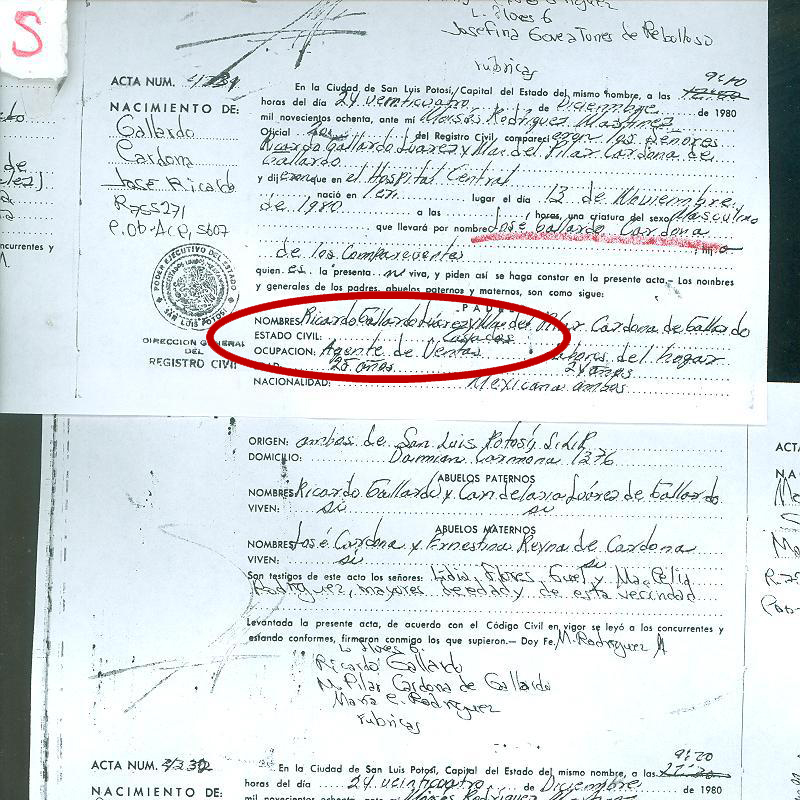 S
L. Flores G
Josefina Govea Tunes de Rebolloso
rubricas
9:10
ACTA NUM. En la Ciudad de San Luis Potosí, Capital del Estado del mismo nombre, a las
horas del día 24 veinticuatro de Diciembre de 1980
NACIMIENTO DE: mil novecientos ochenta, ante mí Moisés Rodríguez Martínez
Gallardo Oficial 2o. del Registro Civil, comparecieron los señores
Cardona Ricardo Gallardo Juárez y Ma. del Pilar Cardona de
José Ricardo Gallardo
R.755271 y dijeron que en el Hospital Central
P.Ob.Acq. 5607 nació en lugar el día 13 de Noviembre
de 1980 a las horas, una criatura del sexo Masculino
que llevará por nombre José Gallardo Cardona hijo
de los Comparecientes
quien es la presenta viva, y piden así se haga constar en la presente acta.— Los nombres
y generales de los padres, abuelos paternos y maternos, son como sigue:
PODER EJECUTIVO DEL ESTADO
ESTADOS UNIDOS MEXICANOS
SAN LUIS POTOSI
DIRECCION GENERAL
DEL
REGISTRO CIVIL
PADRES
NOMBRES Ricardo Gallardo Juárez y Ma. del Pilar Cardona de Gallardo
ESTADO CIVIL: Casados
OCUPACION: Agente de Ventas labores del hogar
25 años 24 años
NACIONALIDAD: Mexicana ambos
ORIGEN: ambos de San Luis Potosí, S.L.P.
DOMICILIO: Damian Carmona 1376
ABUELOS PATERNOS
NOMBRES Ricardo Gallardo y Candelaria Juárez de Gallardo
VIVEN: si si
ABUELOS MATERNOS
NOMBRES José Cardona y Ernestina Reyna de Cardona
VIVEN: si si
Son testigos de este acto los señores: Lidia Flores Guel y Ma. Celia
Rodríguez, mayores de edad y de esta vecindad
Levantada la presente acta, de acuerdo con el Código Civil en vigor se leyó a los concurrentes y
estando conformes, firmaron conmigo los que supieron.— Doy Fe. M. Rodríguez M
L. Flores G.
Ricardo Gallardo
M. Pilar Cardona de Gallardo
María C. Rodríguez
rubricas
9:20
ACTA NUM. 4232 En la Ciudad de San Luis Potosí, Capital del Estado del mismo nombre, a las
horas del día 24 veinticuatro de Diciembre de 1980
NACIMIENTO DE: mil novecientos ochenta, ante mí Moisés Rodríguez